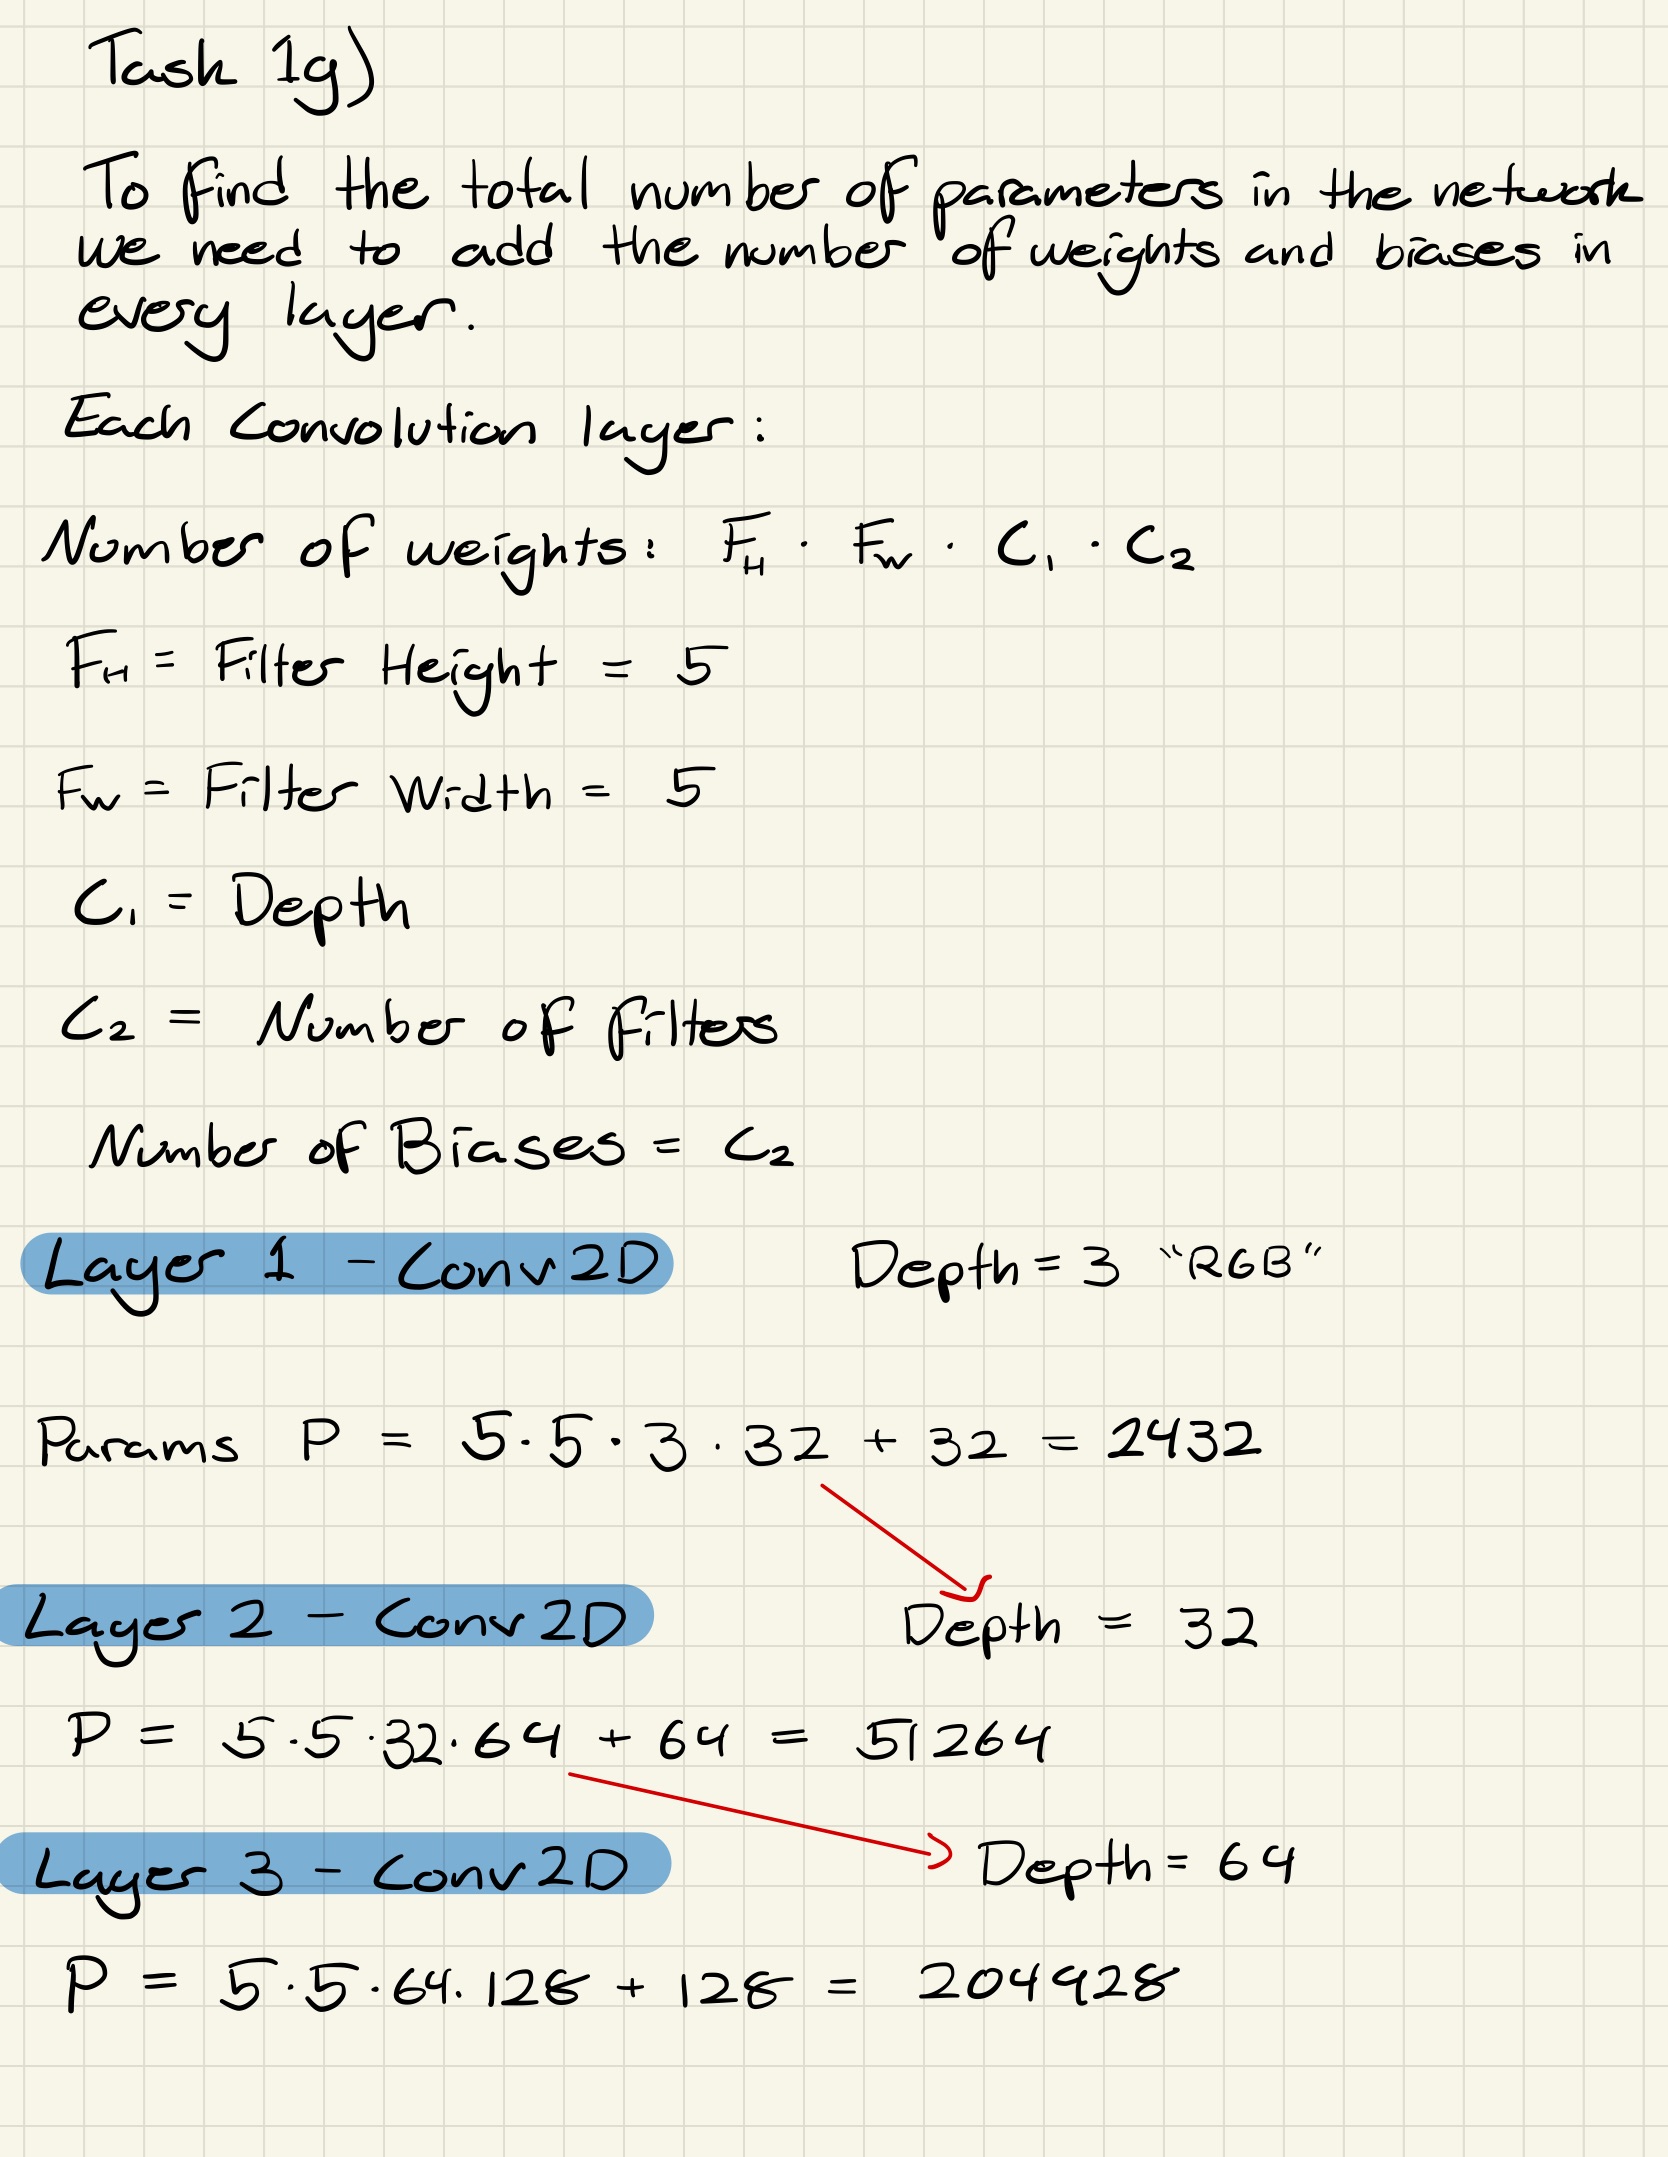 Task 1g)
To find the total number of parameters in the network
we need to add the number of weights and biases in
every layer.
Each Convolution layer:
Number of weights: F_H · F_W · C_1 · C_2
F_H = Filter Height = 5
F_W = Filter Width = 5
C_1 = Depth
C_2 = Number of filters
Number of Biases = C_2
Layer 1 - Conv2D Depth = 3 "RGB"
Params P = 5·5·3·32 + 32 = 2432
Layer 2 - Conv2D Depth = 32
P = 5·5·32·64 + 64 = 51264
Layer 3 - Conv2D Depth = 64
P = 5·5·64·128 + 128 = 204928